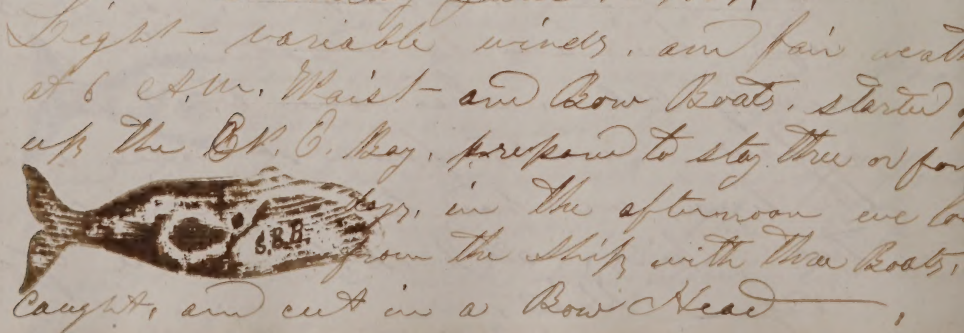 Light variable winds, and fair
at 6 A.M. Waist and Bow Boats, started
up the N. E. Bay, prepared to stay three or
days, in the afternoon we
S.B.B.
from the Ship with three Boats,
caught, and cut in a Bow Head